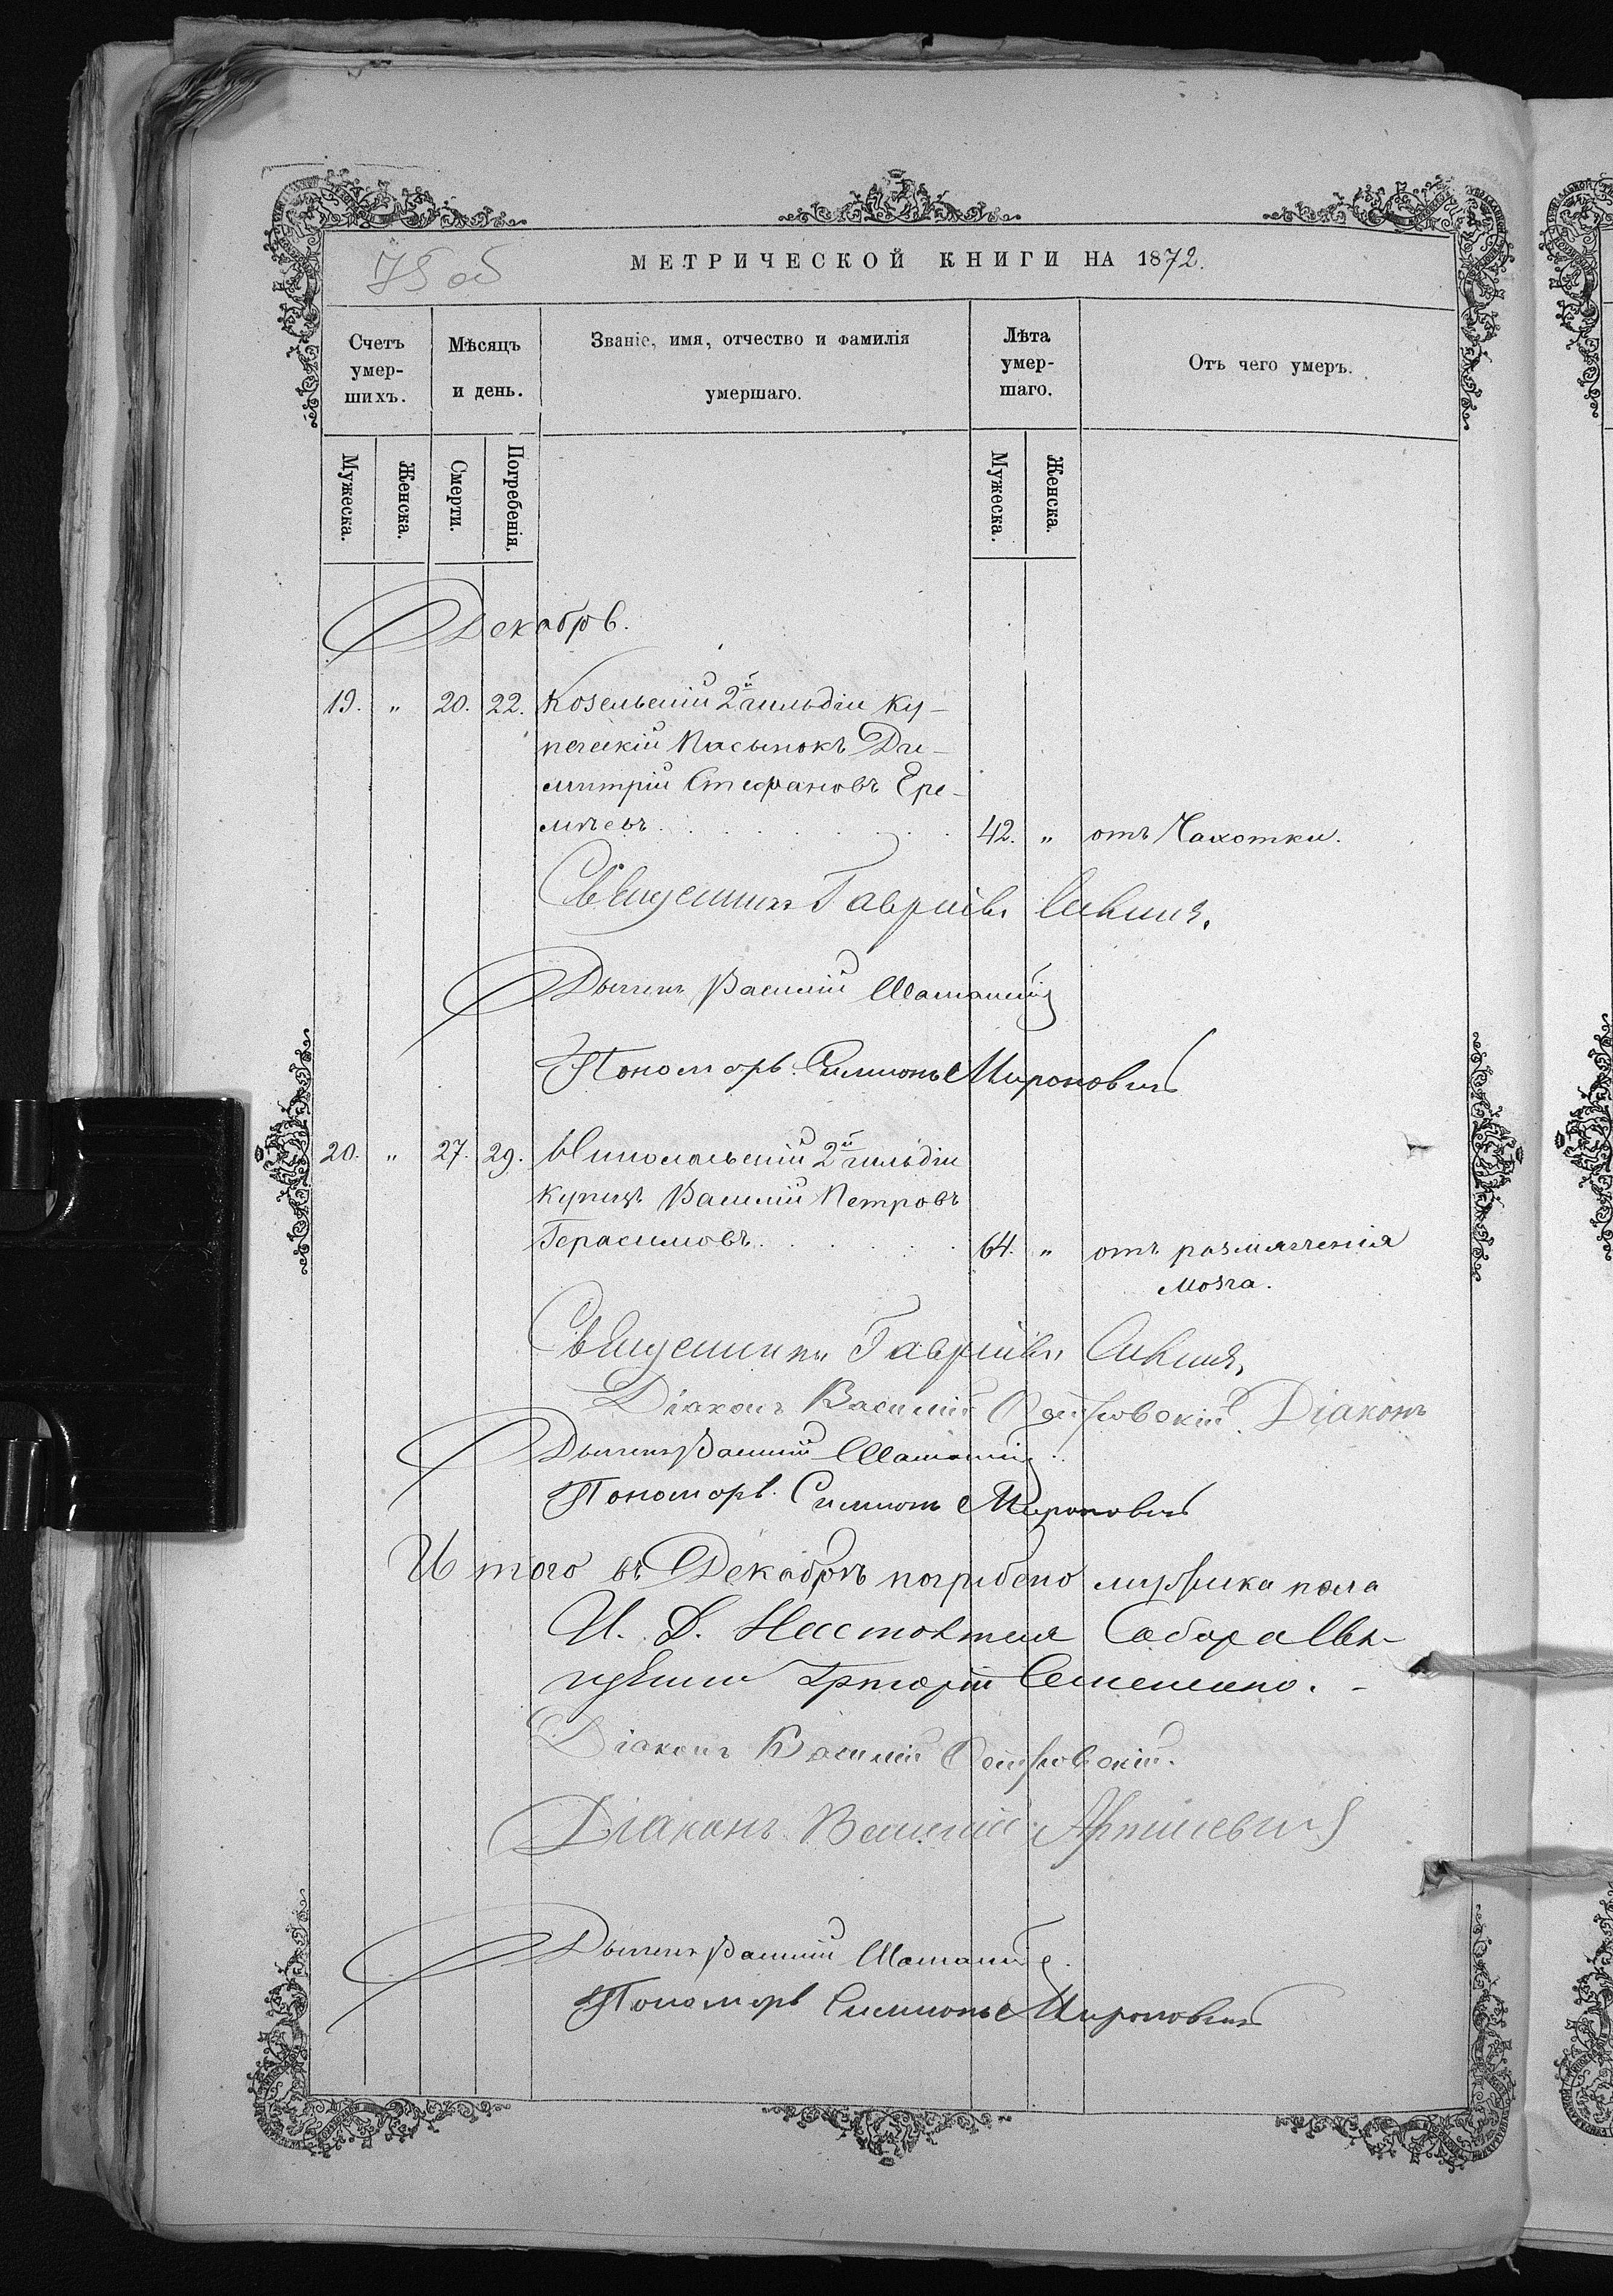 75 об
МЕТРИЧЕСКОЙ КНИГИ НА 1872.
Счетъ умер-шихъ.
Мѣсяцъ и день.
Званіе, имя, отчество и фамилія умершаго.
Лѣта умер-шаго.
Отъ чего умеръ.
Мужеска. Женска. Смерти. Погребенія. Мужеска. Женска.
Декабрь.
19. „ 20. 22. Козельскій 2й гильдіи ку-
печескій Пасынокъ Ди-
митрій Стефановъ Ере-
мѣевъ. 42. „ отъ Чахотки.
Священникъ Гавріилъ
Дьячекъ Василій
Пономарь Симеонъ Мироновичъ
20. „ 27. 29. 2й гильдіи
Купецъ Василій Петровъ
Герасимовъ. 64. „ отъ размягченія
мозга.
Священникъ Гавріилъ
Діаконъ Василій Островскій. Діаконъ
Дьячекъ Василій
Пономарь Симеонъ Мироновичъ
Итого въ Декабрѣ погребено мужеска пола
И. Д. Настоятеля Собора Свя-
щенникъ Григорій
Діаконъ Василій Островскій.
Діаконъ Василій
Дьячекъ Василій
Пономарь Симеонъ Мироновичъ